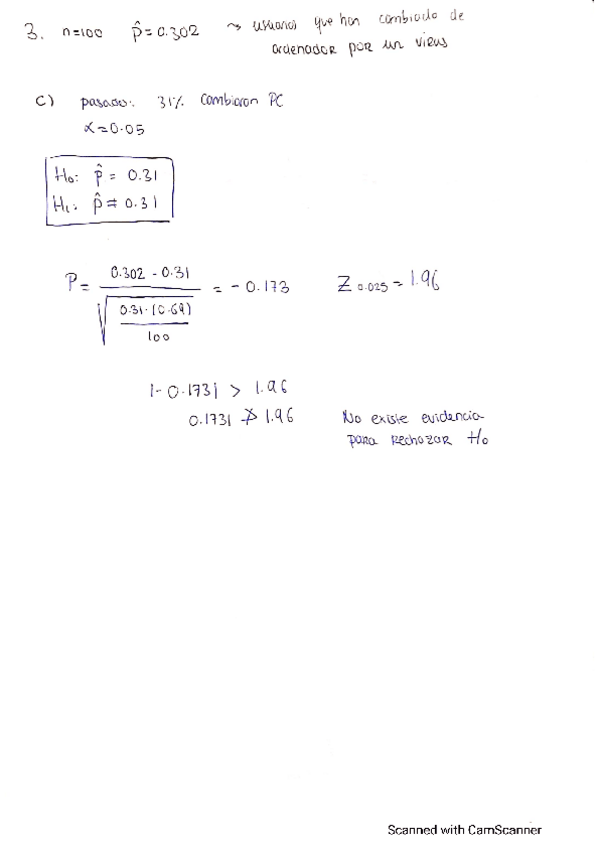 3. n=100 p̂=0.302 ~> usuarios que han cambiado de
ordenador por un virus
c) pasado: 31% cambiaron PC
α=0.05
H₀: p̂ = 0.31
H₁: p̂ ≠ 0.31
P = (0.302 - 0.31) / √(0.31·(0.69) / 100) = -0.173 Z 0.025 = 1.96
|-0.173| > 1.96
0.173| ≯ 1.96 No existe evidencia
para rechazar H₀
Scanned with CamScanner